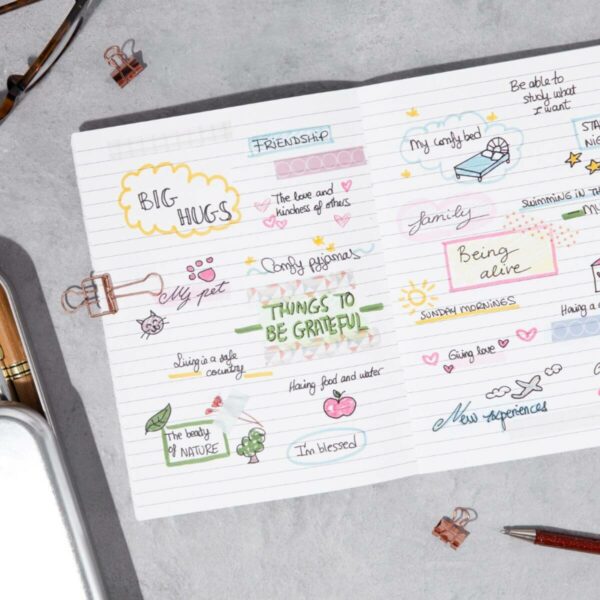 FRIENDSHIP
BIG
HUGS
The love and
kindness of others
My pet
Comfy pyjamas
THINGS TO
BE GRATEFUL
Living is a safe
country
Having food and water
The beaty
of NATURE
I'm blessed
Be able to
study what
I want
My comfy bed
STA
NIG
family
SWIMMING IN TH
MY
Being
alive
SUNDAY MORNINGS
Having a
Giving love
New experiences